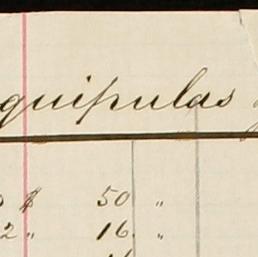 quipulas
$ 50 "
2 " 16. "